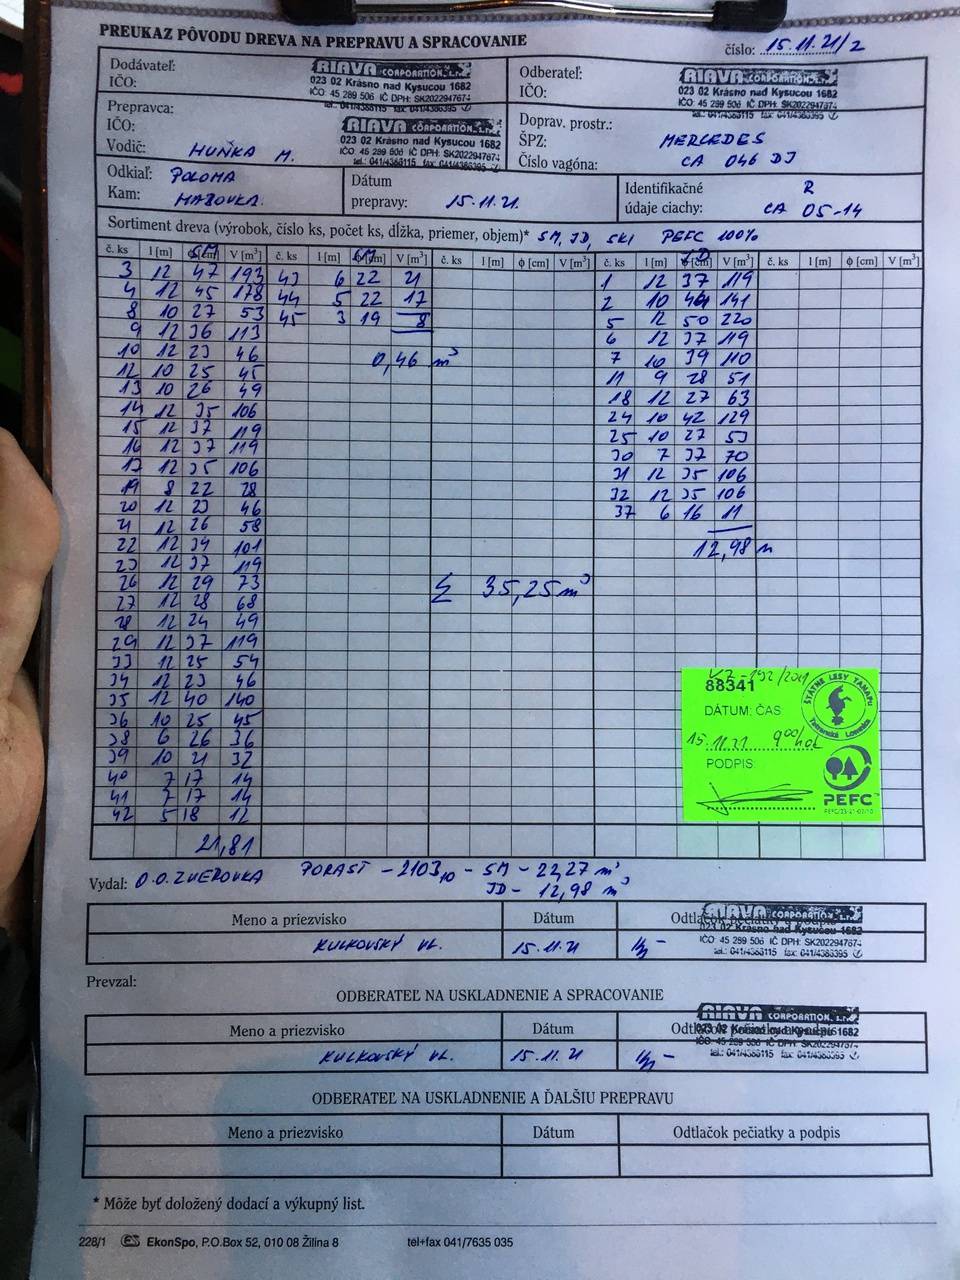 PREUKAZ PÔVODU DREVA NA PREPRAVU A SPRACOVANIE
číslo: 15.11.21/2
Dodávateľ:
IČO:
RIAVA CORPORATION, s.r.o.
023 02 Krásno nad Kysucou 1682
IČO: 45 289 506 IČ DPH: SK2022947674
tel.: 041/4385115 fax: 041/4386395
Odberateľ:
IČO:
RIAVA CORPORATION, s.r.o.
023 02 Krásno nad Kysucou 1682
IČO: 45 289 506 IČ DPH: SK2022947674
Prepravca:
IČO:
Vodič: HUŇKA M.
RIAVA CORPORATION, s.r.o.
023 02 Krásno nad Kysucou 1682
IČO: 45 289 506 IČ DPH: SK2022947674
Doprav. prostr.:
ŠPZ: MERCEDES
Číslo vagóna: CA 046 DJ
Odkiaľ: POLOMA
Kam: MAZOVKA.
Dátum
prepravy: 15.11.21.
Identifikačné R
údaje ciachy: CA 05-14
Sortiment dreva (výrobok, číslo ks, počet ks, dĺžka, priemer, objem)* SM, JD, SKI PEFC 100%
SM SM JD
č. ks l [m] ϕ [cm] V [m³] č. ks l [m] ϕ [cm] V [m³] č. ks l [m] ϕ [cm] V [m³] č. ks l [m] ϕ [cm] V [m³] č. ks l [m] ϕ [cm] V [m³]
3 12 47 193 43 6 22 21 1 12 37 119
4 12 45 178 44 5 22 17 2 10 44 141
8 10 27 53 45 3 19 8 5 12 50 220
9 12 36 113 6 12 37 119
10 12 23 46 0,46 m³ 7 10 39 110
12 10 25 45 11 9 28 51
13 10 26 49 18 12 27 63
14 12 35 106 24 10 42 129
15 12 37 119 25 10 27 53
16 12 37 119 30 7 37 70
17 12 35 106 31 12 35 106
19 8 22 28 32 12 35 106
20 12 23 46 37 6 16 11
21 12 26 58
22 12 34 101 12,98 m
23 12 37 119
26 12 29 73 Σ 35,25 m³
27 12 28 68
28 12 24 49
29 12 37 119
33 12 25 54
34 12 23 46
35 12 40 140
36 10 25 45
38 6 26 36
39 10 21 32
40 7 17 14
41 7 17 14
42 5 18 12
21,81
88341
DÁTUM; ČAS
15.11.21 9⁰⁰ hod
PODPIS:
ŠTÁTNE LESY TANAPu
Tatranská Lomnica
PEFC
Vydal: O.O. ZVEROVKA PORAST - 2103 10 - SM - 22,27 m³
JD - 12,98 m³
Meno a priezvisko Dátum Odtlačok pečiatky a podpis
KULKOVSKÝ VL. 15.11.21
RIAVA CORPORATION, s.r.o.
023 02 Krásno nad Kysucou 1682
IČO: 45 289 506 IČ DPH: SK2022947674
tel.: 041/4385115 fax: 041/4386395
Prevzal:
ODBERATEĽ NA USKLADNENIE A SPRACOVANIE
Meno a priezvisko Dátum Odtlačok pečiatky a podpis
KULKOVSKÝ VL. 15.11.21
RIAVA CORPORATION, s.r.o.
023 02 Krásno nad Kysucou 1682
IČO: 45 289 506 IČ DPH: SK2022947674
tel.: 041/4385115 fax: 041/4386395
ODBERATEĽ NA USKLADNENIE A ĎALŠIU PREPRAVU
Meno a priezvisko Dátum Odtlačok pečiatky a podpis
* Môže byť doložený dodací a výkupný list.
228/1 ES EkonSpo, P.O.Box 52, 010 08 Žilina 8 tel+fax 041/7635 035